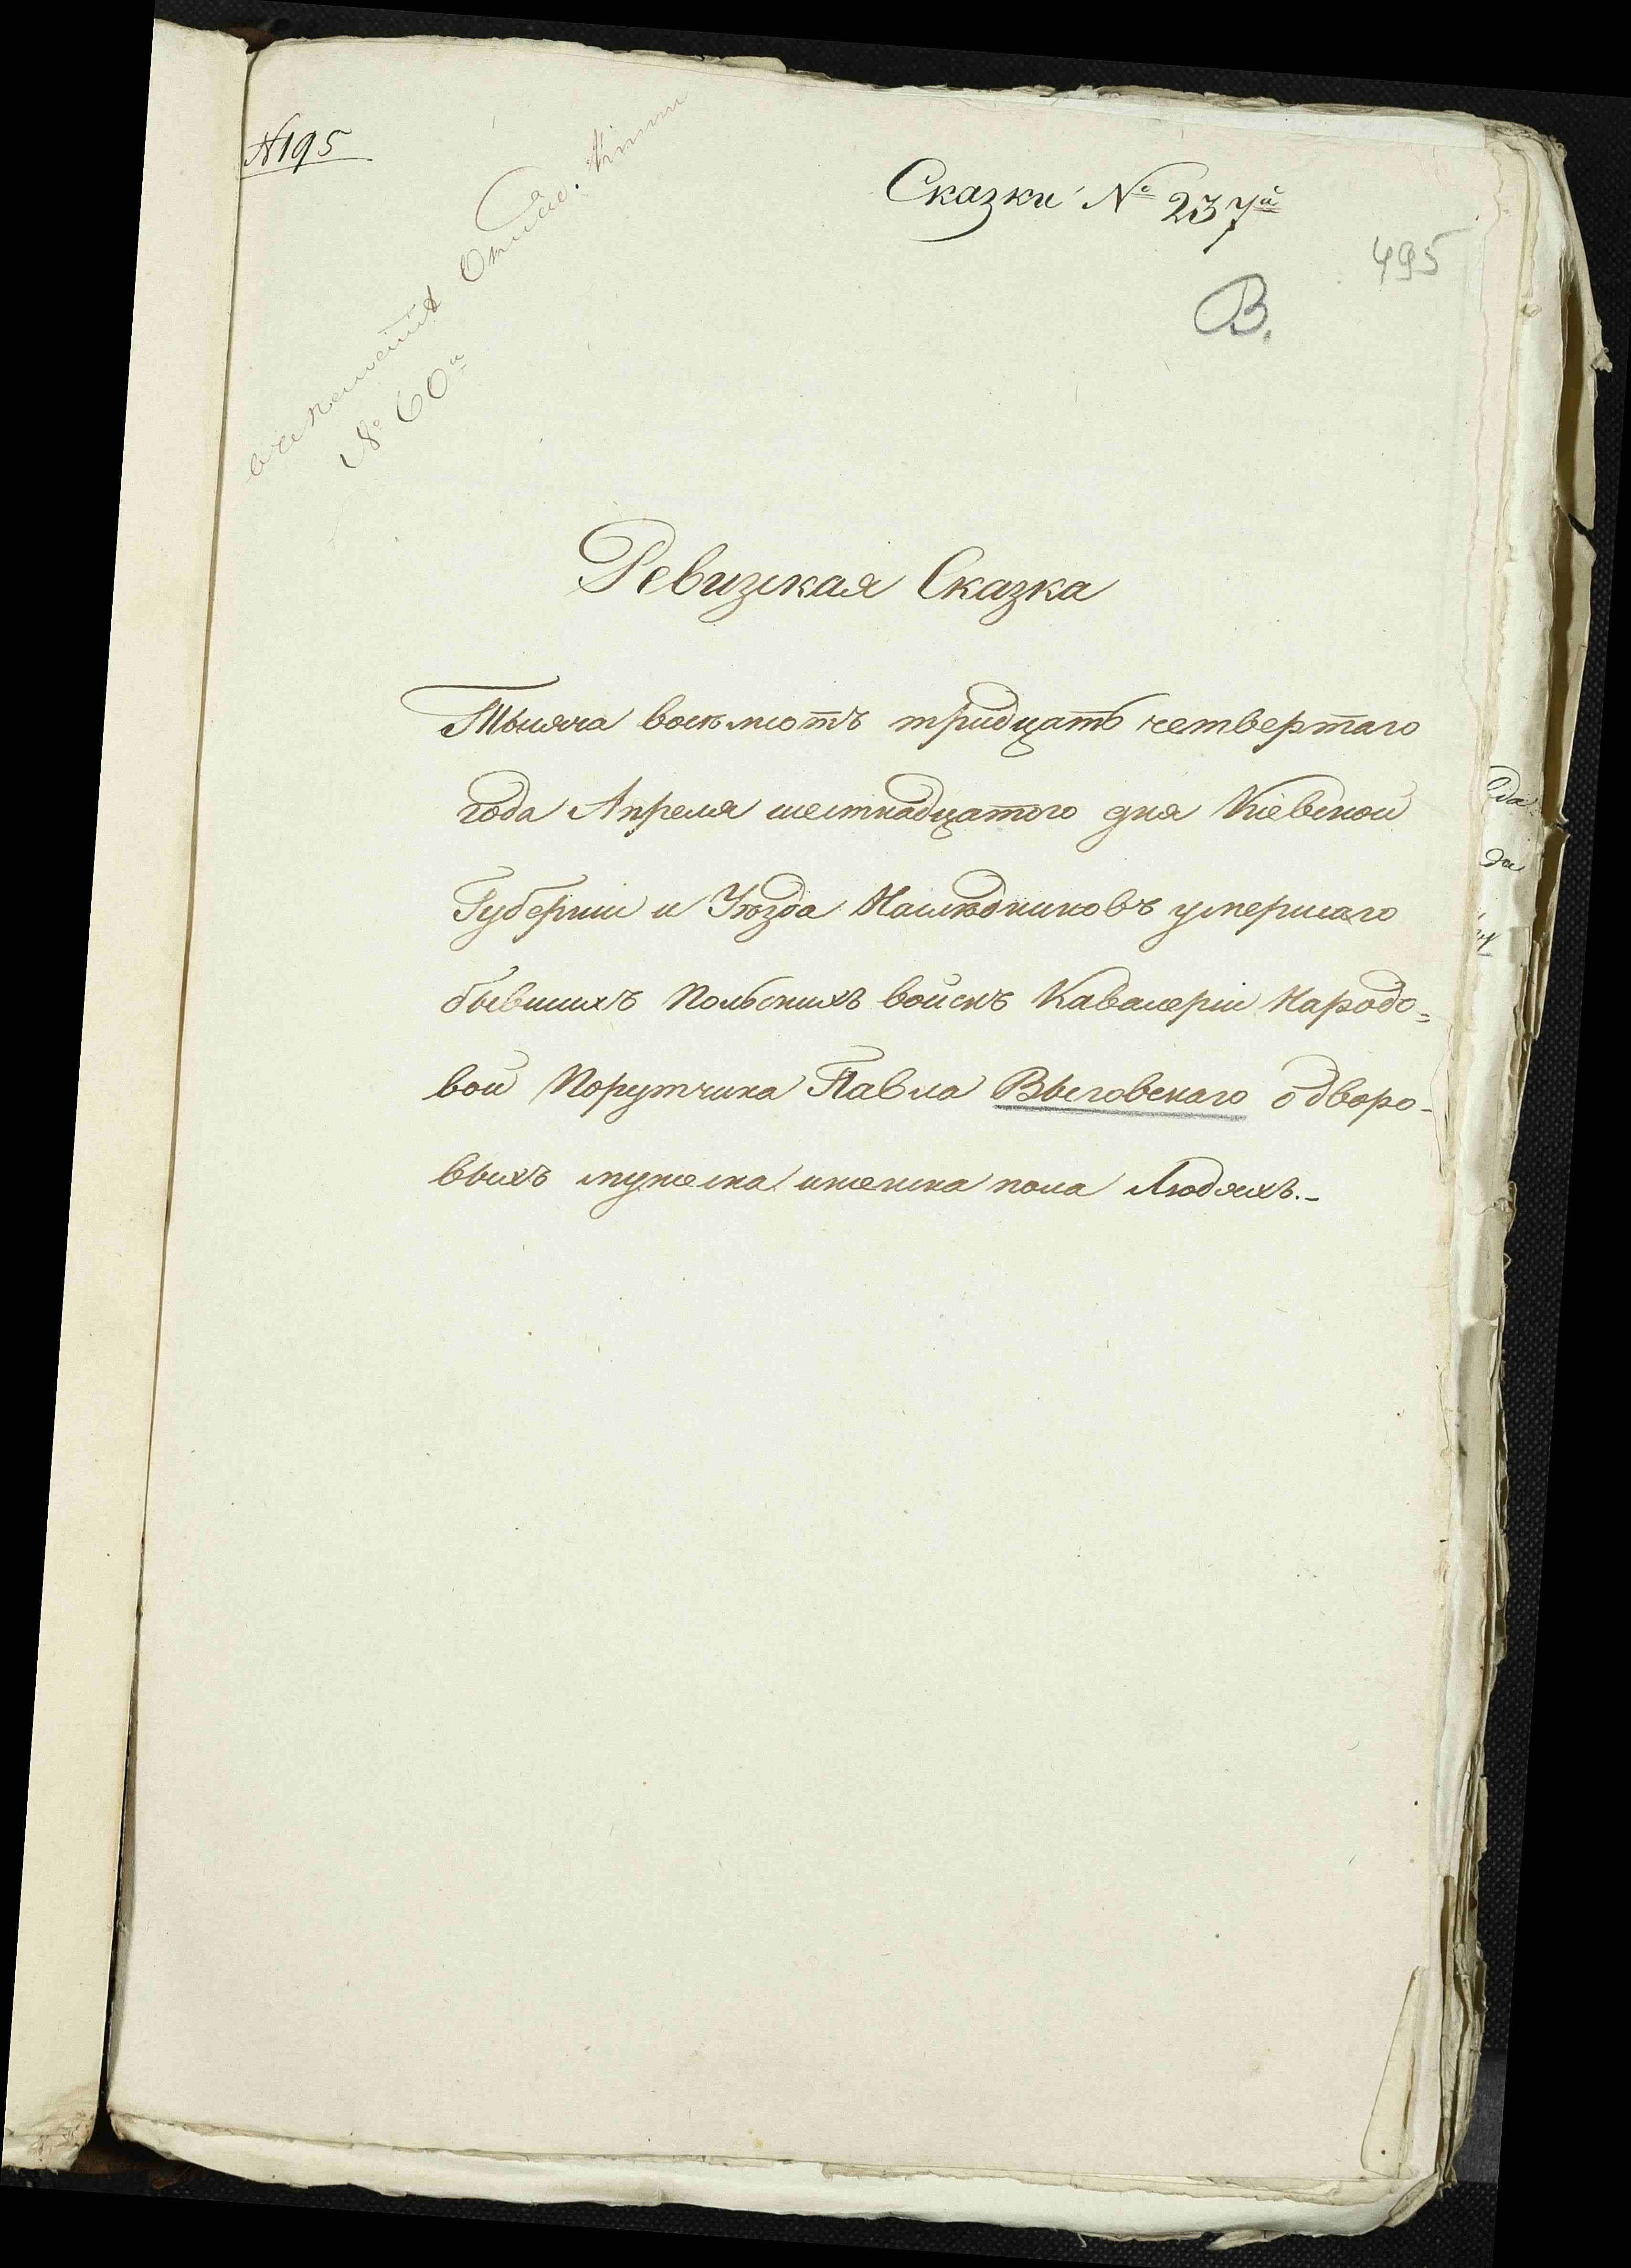 №195
Сказки № 237й
495
В.
№ 60й
Ревизская Сказка
Тысяча восемьсотъ тридцать четвертаго
года Апреля шестнадцатого дня Кіевской
Губерніи и Уѣзда Наслѣдниковъ умершаго
бывшихъ Польскихъ войскъ Кавалеріи Народо=
вой Порутчика Павла Выговскаго о дворо-
выхъ мужеска и женска пола Людяхъ.-